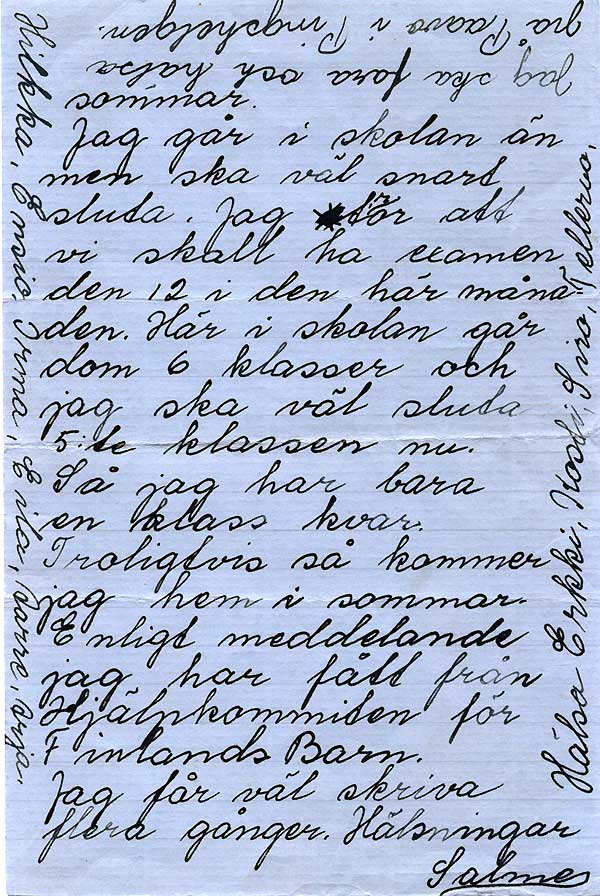 sommar.
Jag går i skolan än
men ska väl snart
sluta. Jag tör att
vi skall ha examen
den 12 i den här måna-
den. Här i skolan går
dom 6 klasser och
jag ska väl sluta
5:te klassen nu.
Så jag har bara
en klass kvar.
Troligtvis så kommer
jag hem i sommar.
Enligt meddelande
jag har fått från
Hjälpkommiten för
Finlands Barn.
Jag får väl skriva
flera gånger. Hälsningar
Salme
Hälsa Erkki, Kosti, Siro, Tellervo,
Hilkka, Ensio, Irma, Eila, Arja.
Jag ska fara och hälsa
på Paavo i Pingsthelgen.